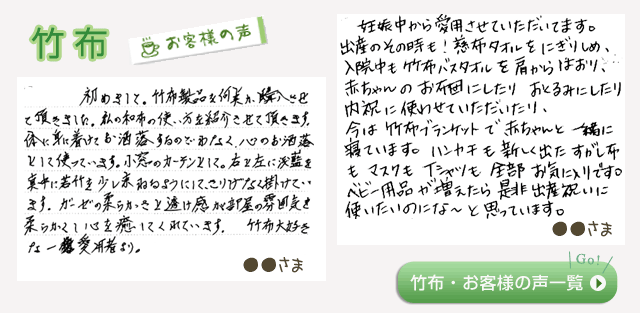 竹布
お客様の声
初めまして。竹布製品を何点か購入させ
て頂きました。私の和布の使い方を紹介させて頂きます。
体に身に着けてお洒落するのではなく、心のお洒落
として使っています。小窓のカーテンとして。右と左に淡藍を
真中に若竹を少し重ねるようにしてさりげなく掛けてい
ます。ガーゼの柔らかさと透け感が部屋の雰囲気を
柔らかくして心を癒してくれています。 竹布大好き
な一愛用者より。
●●さま
妊娠中から愛用させていただいてます。
出産のその時も!竹布タオルをにぎりしめ、
入院中も竹布バスタオルを肩からはおり、
赤ちゃんのお布団にしたり おくるみにしたり
内祝に使わせていただいたり、
今は竹布ブランケットで赤ちゃんと一緒に
寝ています。ハンカチも新しく出たすがし布
もマスクもTシャツも全部お気に入りです。
ベビー用品が増えたら是非出産祝いに
使いたいのにな〜と思っています。
●●さま
Go!
竹布・お客様の声一覧